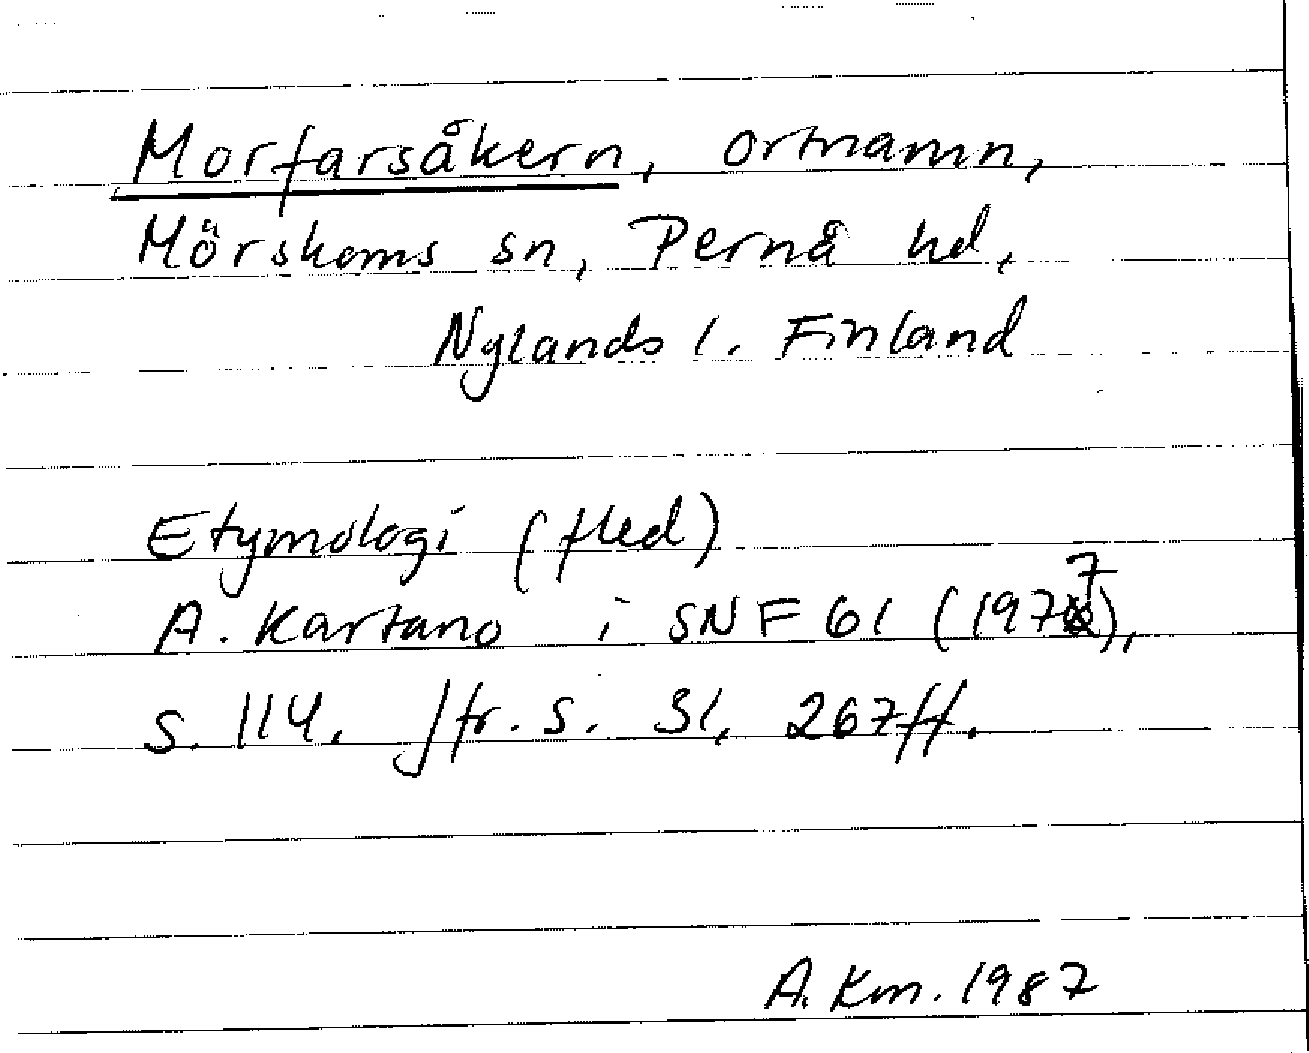 Morfarsåkern, ortnamn,
Mörskoms sn, Pernå hd,
Nylands l. Finland
Etymologi (fled)
A. Kartano i SNF 61 (1977),
s. 114. Jfr. s. 31, 267ff.
A. Km. 1987